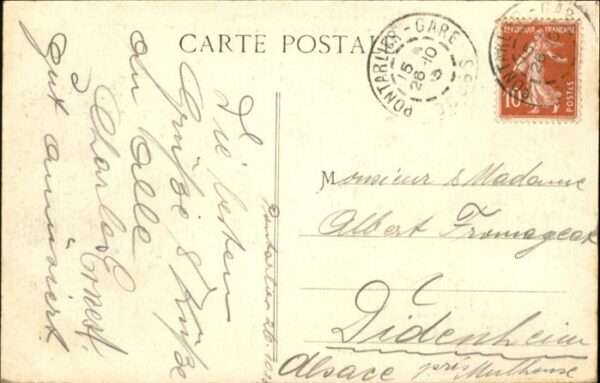 CARTE POSTALE
PONTARLIER-GARE
15
26-10
DOUBS
REPUBLIQUE FRANÇAISE
10
POSTES
Pontarlier 26.10.
Die besten
Grüße & Küße
an alle
Charles Ernest.
gut amusiert
Monsieur & Madame
Albert Fromageat
Didenheim
près Mulhouse
Alsace